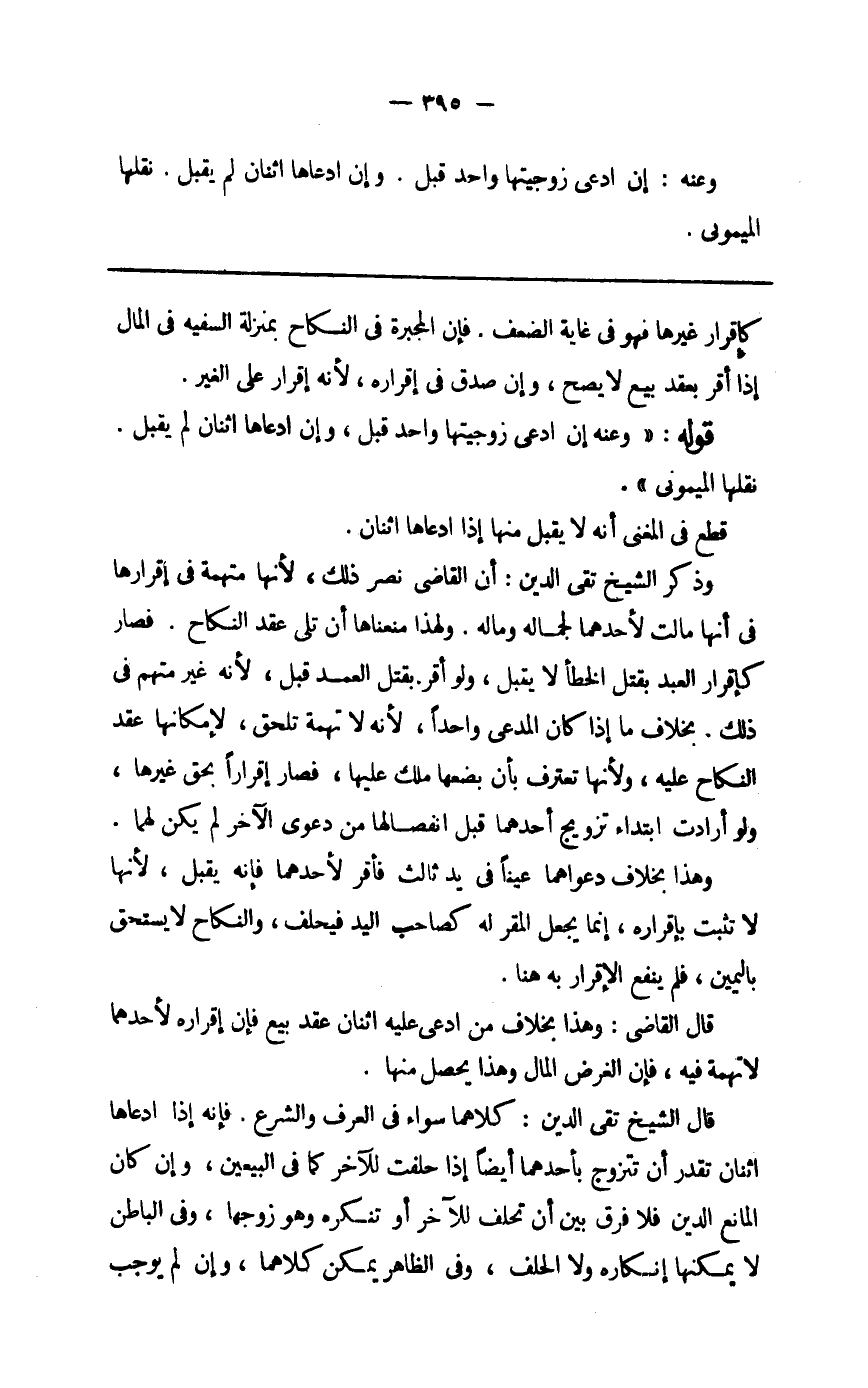 — ٣٩٥ —
وعنه : إن ادعى زوجيتها واحد قبل . وإن ادعاها اثنان لم يقبل . نقلها
الميمونى .
كإقرار غيرها فهو فى غاية الضعف . فإن المجبرة فى النكاح بمنزلة السفيه فى المال
إذا أقر بعقد بيع لا يصح ، وإن صدق فى إقراره ، لأنه إقرار على الغير .
قوله : « وعنه إن ادعى زوجيتها واحد قبل ، وإن ادعاها اثنان لم يقبل .
نقلها الميمونى » .
قطع فى المغنى أنه لا يقبل منها إذا ادعاها اثنان .
وذكر الشيخ تقى الدين : أن القاضى نصر ذلك ، لأنها متهمة فى إقرارها
فى أنها مالت لأحدهما لجماله وماله . ولهذا منعناها أن تلى عقد النكاح . فصار
كإقرار العبد بقتل الخطأ لا يقبل ، ولو أقر بقتل العمد قبل ، لأنه غير متهم فى
ذلك . بخلاف ما إذا كان المدعى واحداً ، لأنه لا تهمة تلحق ، لإمكانها عقد
النكاح عليه ، ولأنها تعترف بأن بضعها ملك عليها ، فصار إقراراً بحق غيرها ،
ولو أرادت ابتداء تزويج أحدهما قبل انفصالها من دعوى الآخر لم يكن لهما .
وهذا بخلاف دعواهما عيناً فى يد ثالث فأقر لأحدهما فإنه يقبل ، لأنها
لا تثبت بإقراره ، إنما يجعل المقر له كصاحب اليد فيحلف ، والنكاح لا يستحق
باليمين ، فلم ينفع الإقرار به هنا .
قال القاضى : وهذا بخلاف من ادعى عليه اثنان عقد بيع فإن إقراره لأحدهما
لا تهمة فيه ، فإن الغرض المال وهذا يحصل منها .
قال الشيخ تقى الدين : كلاهما سواء فى العرف والشرع . فإنه إذا ادعاها
اثنان تقدر أن تتزوج بأحدهما أيضاً إذا حلفت للآخر كما فى البيعين ، وإن كان
المانع الدين فلا فرق بين أن تحلف للآخر أو تنكره وهو زوجها ، وفى الباطن
لا يمكنها إنكاره ولا الحلف ، وفى الظاهر يمكن كلاهما ، وإن لم يوجب